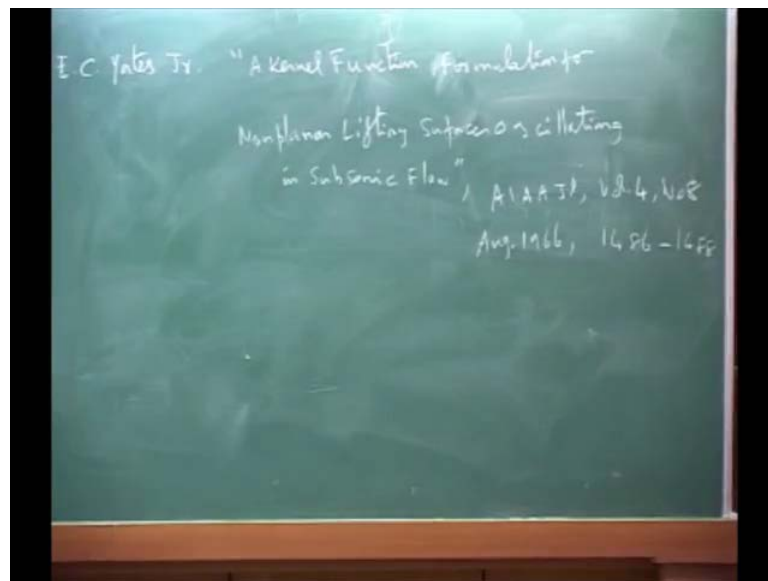 E.C. Yates Jr. "A Kernel Function Formulation for
Nonplanar Lifting Surfaces Oscillating
in Subsonic Flow", AIAA Jl, Vol.4, No8
Aug. 1966, 1486-1488